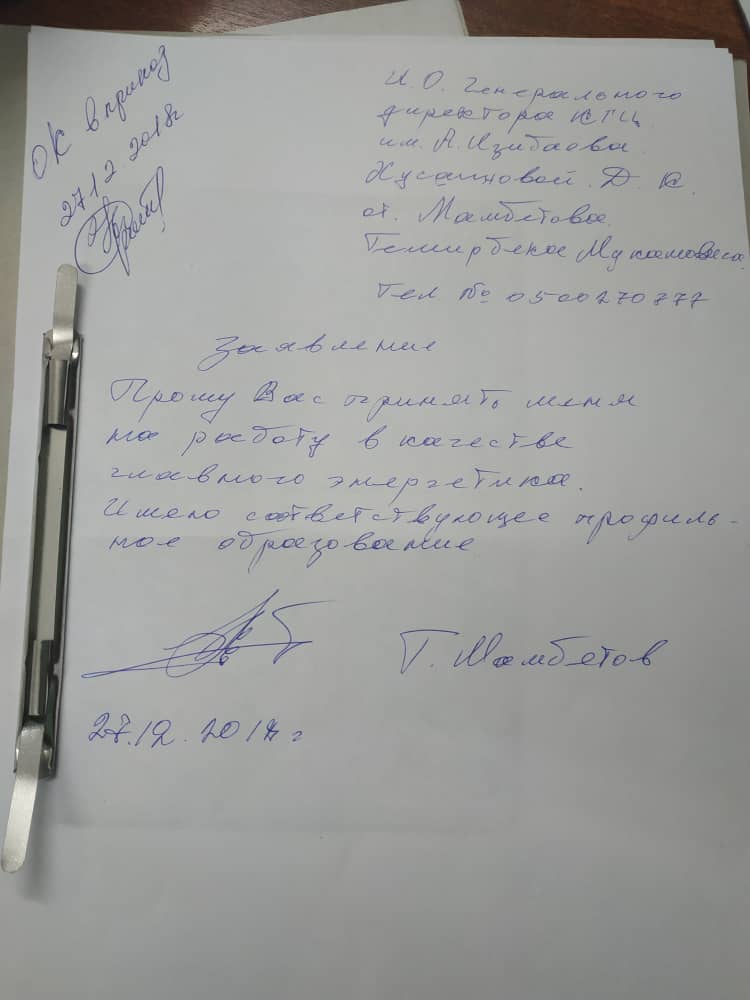 ОК в приказ
27.12.2018г
И.О. Генерального
директора КГЦ
им. А. Изибаева.
Хусаиновой. Д. К.
от. Мамбетова.
Темирбека Мукамовича.
Тел № 0500270777
Заявление
Прошу Вас принять меня
на работу в качестве
главного энергетика.
Имею соответствующее профиль-
ное образование
Т. Мамбетов
27.12.2018 г